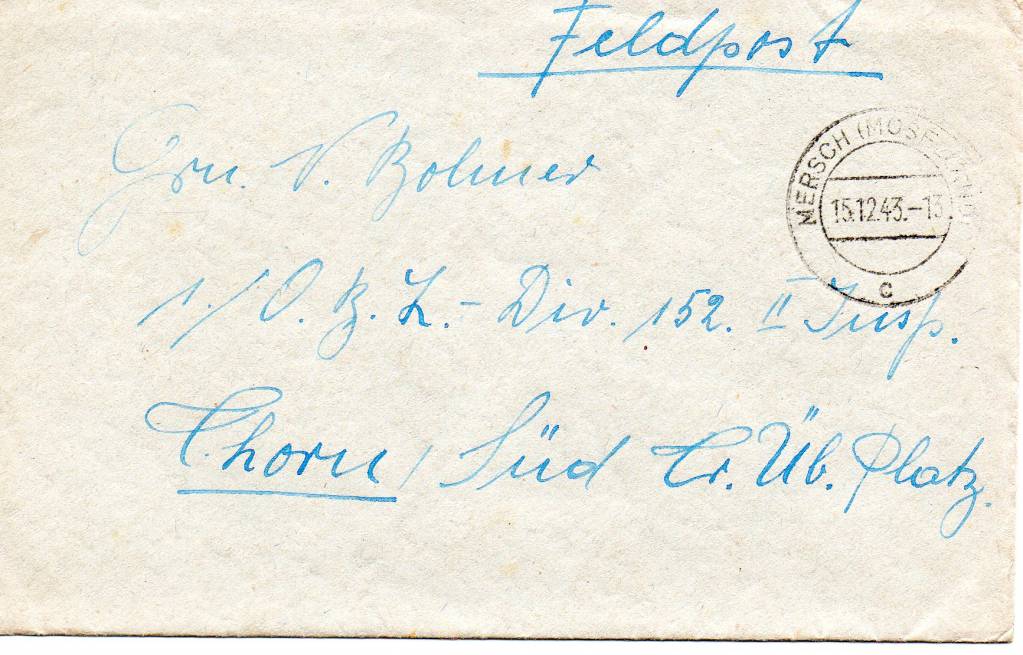 Feldpost
MERSCH (MOSELLAND)
15.12.43.-13
c
Grn. V. Bolmer
1./O. B. L.- Div. 152. II Insp.
Thorn/ Süd Tr. Üb. Platz.